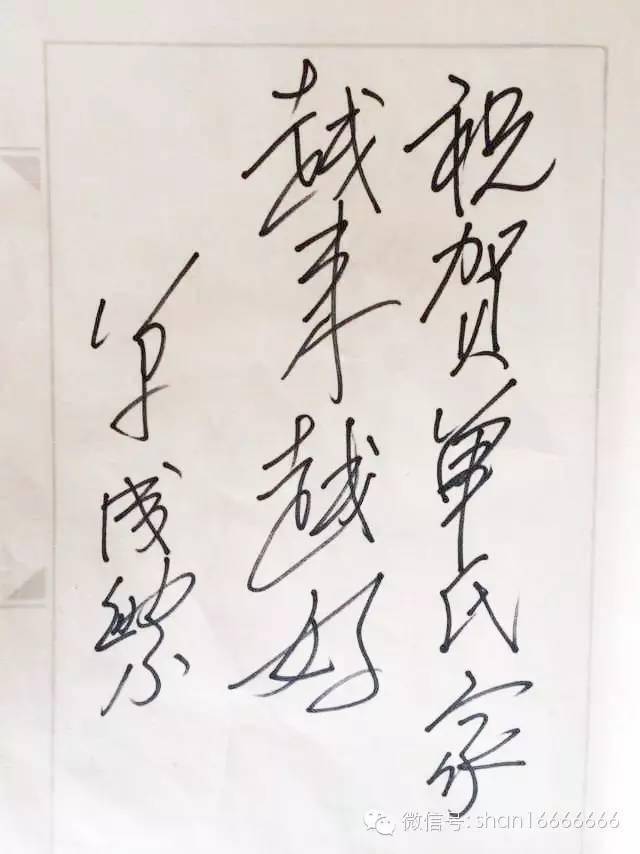 祝贺单氏家
越来越好
单成繁
微信号: shan16666666